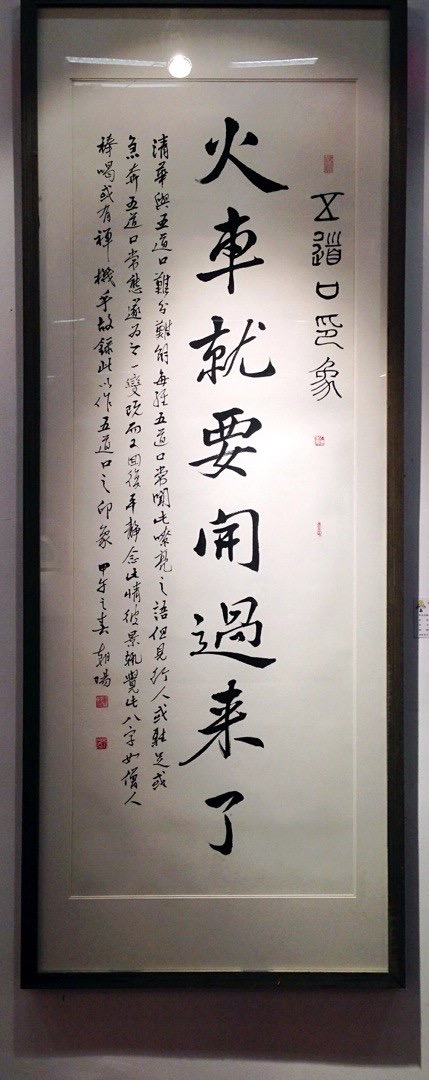 五道口印象
火車就要開過来了
清華與五道口難分難解每經五道口常聞此嘹亮之語但見行人或駐足或
急奔五道口常態遂为之一變旣而又回復平靜念此情彼景輒覺此八字如僧人
棒喝或有禪機乎故録此以作五道口之印象甲午之春朝陽